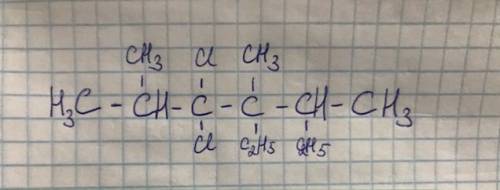 CH3 Cl CH3
H3C - CH - C - C - CH - CH3
Cl C2H5 C2H5